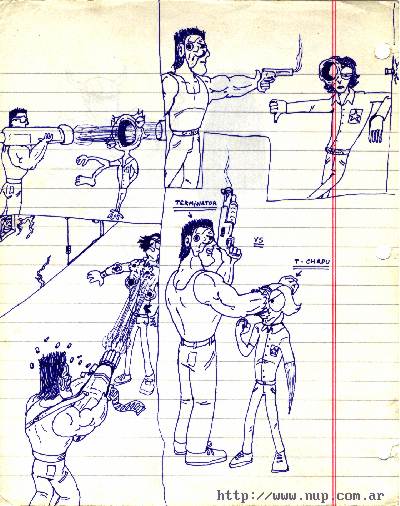 TERMINATOR
VS
T-CHAPU
http://www.nup.com.ar